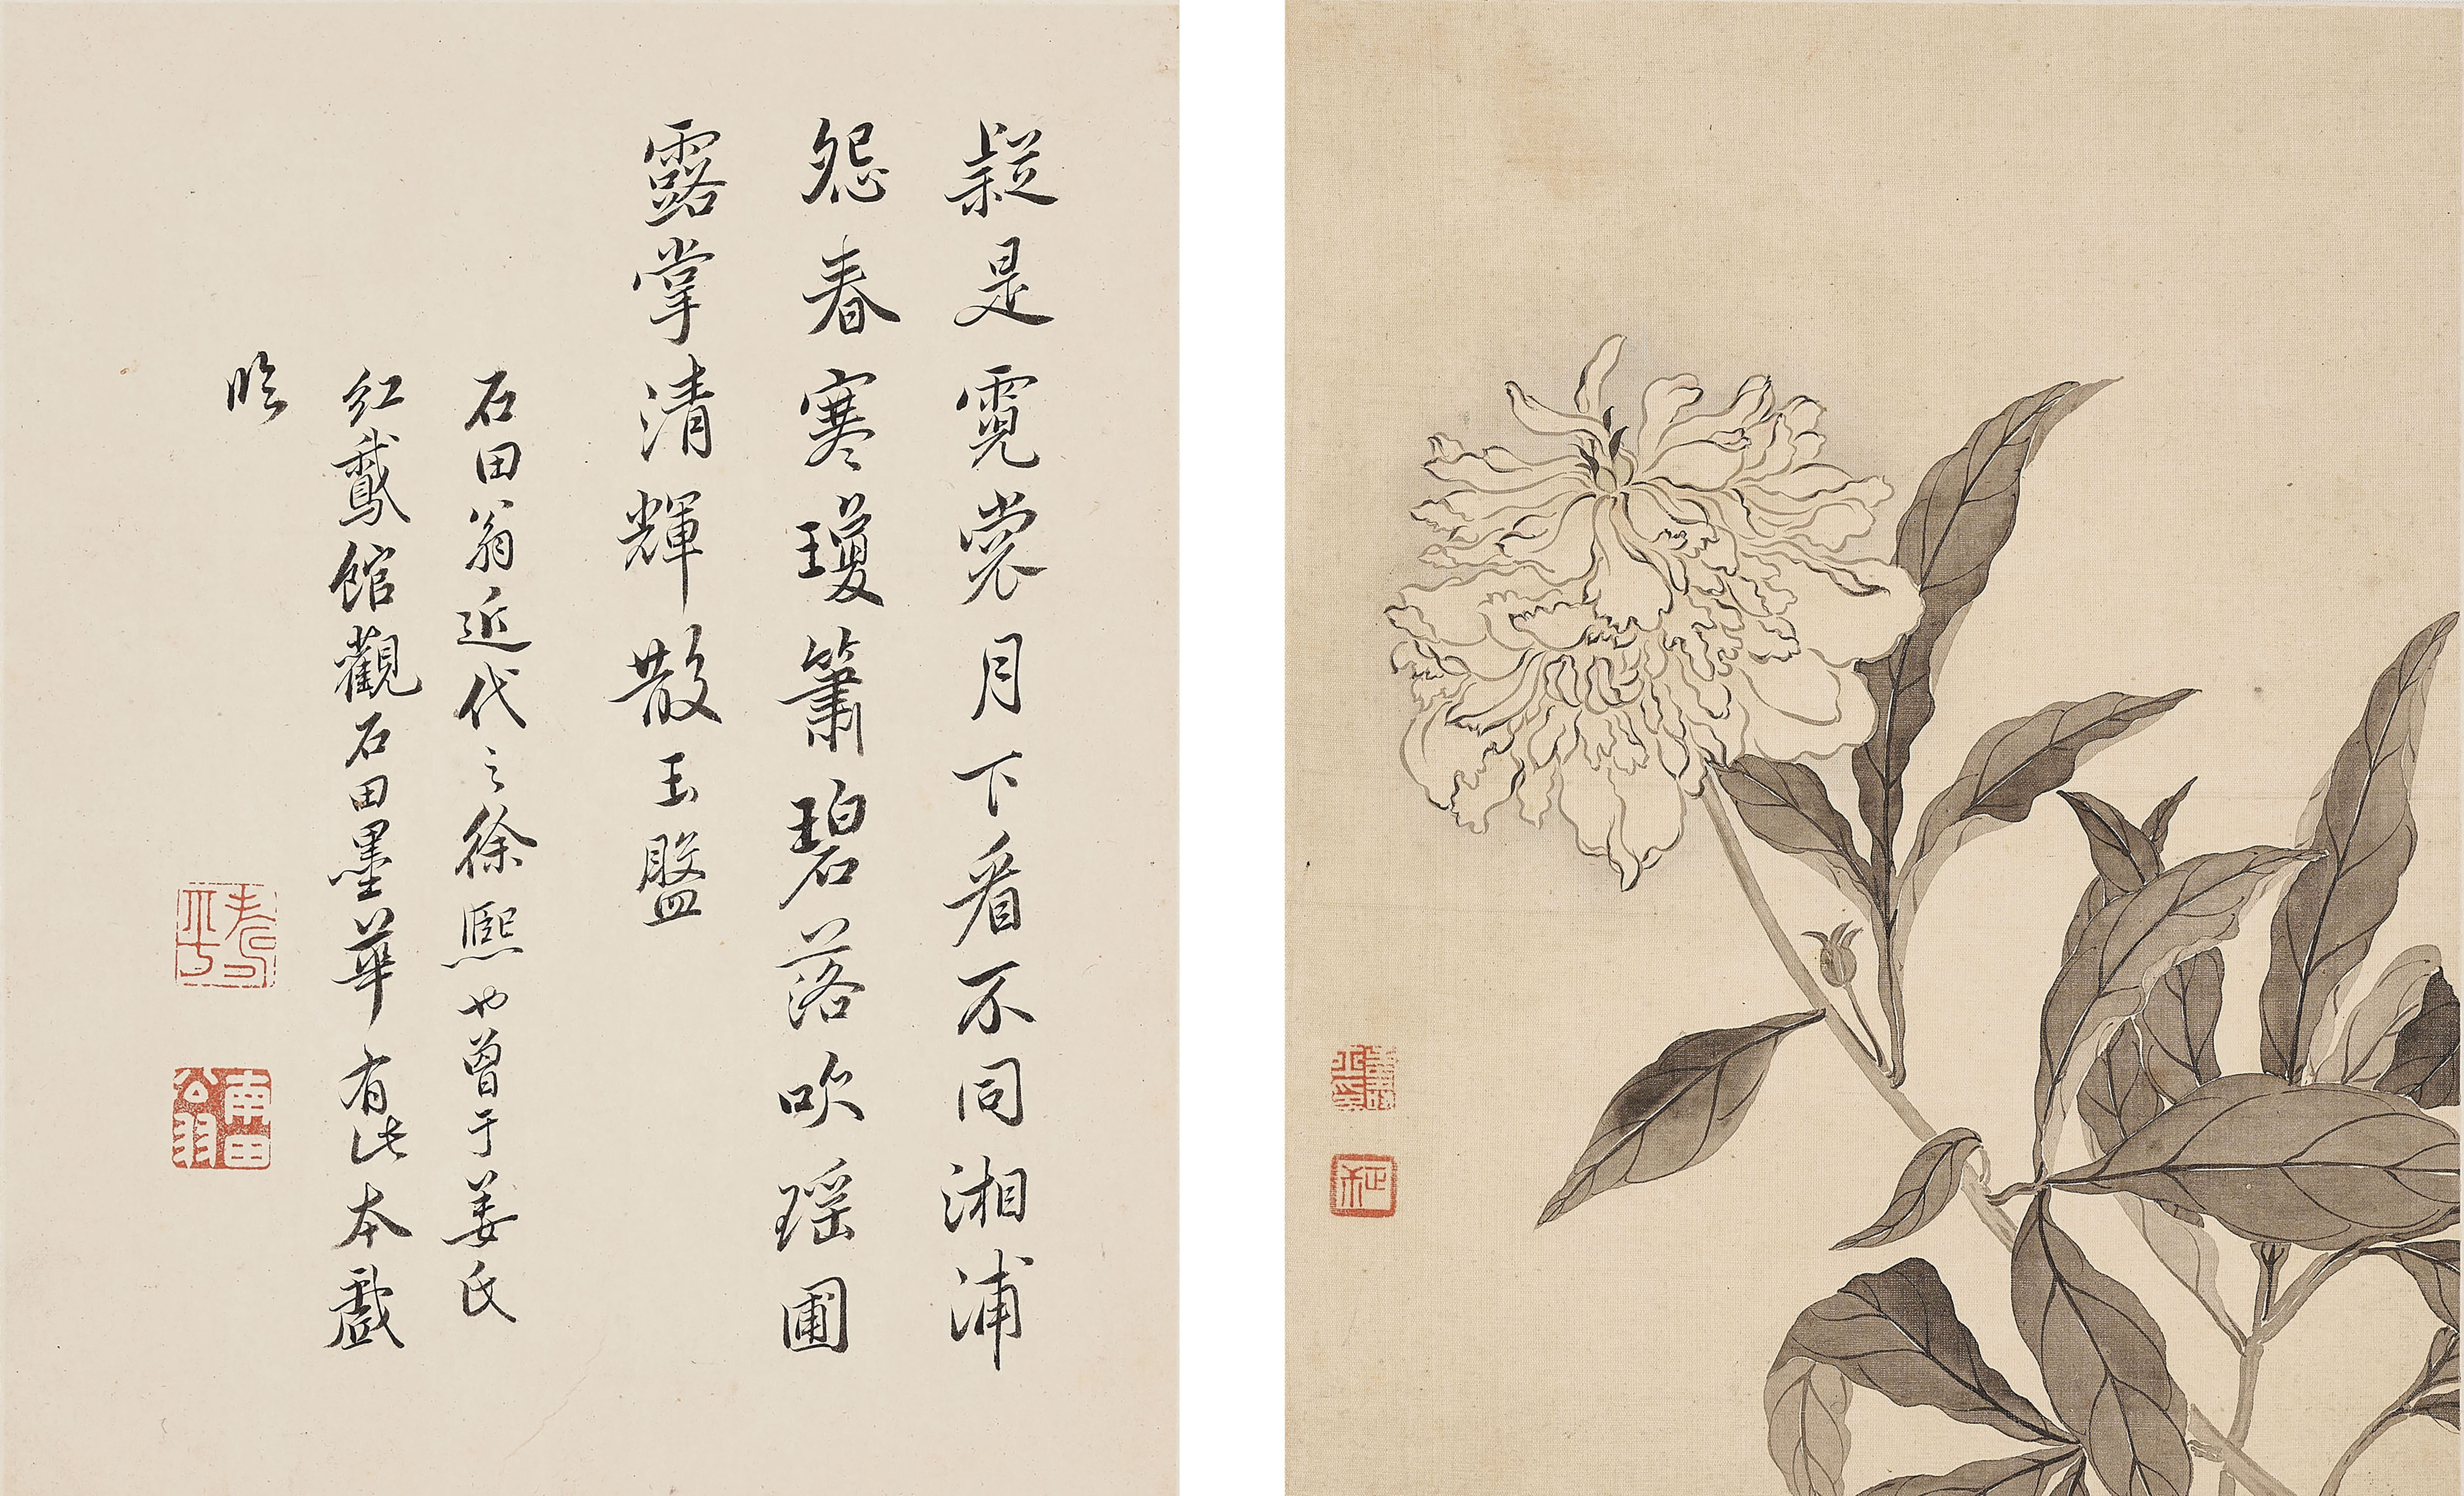 疑是霓裳月下看不同湘浦
怨春寒瓊簫碧落吹瑶圃
露掌清輝散玉盤
石田翁近代之徐熙也曾于姜氏
紅鵞館觀石田墨華有此本戲
臨
南田
公羽